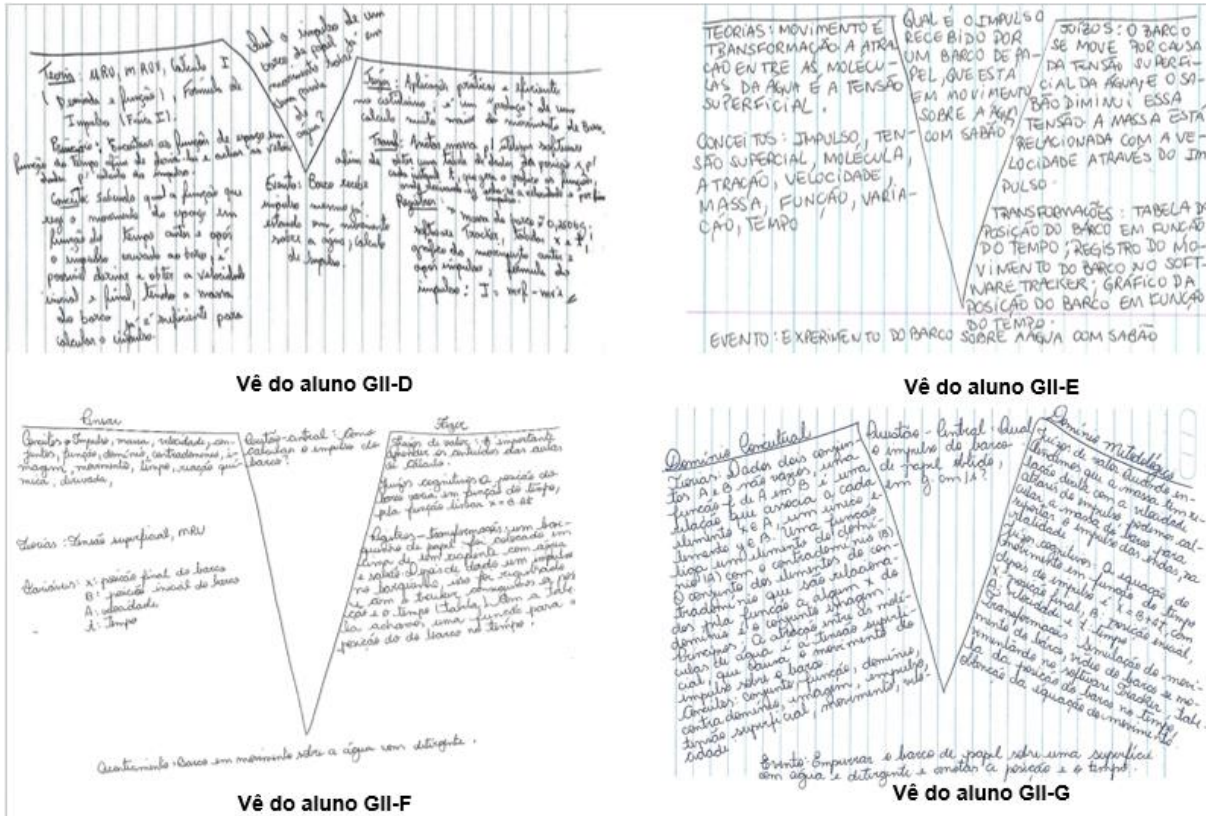 Teoria: MRU, MRUV, Cálculo I
(Derivada e função), Fórmula de
Impulso (Física I).
Princípio: Encontrar as função de espaço em
função do tempo afim de derivá-la e achar as veloci
dades p/ cálculo do impulso.
Conceito: Sabendo qual a função que
rege o movimento do espaço em
função do tempo antes e após
o impulso causado ao barco, é
possível derivar e obter a velocidade
inicial e final, tendo a massa
do barco já é suficiente para
calcular o impulso.
Qual o impulso de um
barco de papel
movimento
de
água?
Evento: Barco recebe
impulso mesmo já
estando em movimento
sobre a água, cálculo
de impulso.
Aplicação prática e eficiente
no cotidiano, é um "produto" de um
cálculo muito maior do movimento do Barco.
Transf: Anotar massa p/ utilizar softwares
afim de obter uma tabela de dados da posição x p/
cada instante t, que gera o gráfico da função
Registros: massa do barco
software Tracker, tabelas x e t,
gráfico do movimento antes e
após impulso, fórmula do
impulso: I =
Vê do aluno GII-D
TEORIAS: MOVIMENTO É
TRANSFORMAÇÃO A ATRA
ÇÃO ENTRE AS MOLÉCU-
LAS DA ÁGUA É A TENSÃO
SUPERFICIAL.
CONCEITOS: IMPULSO, TEN-
SÃO SUPERCIAL, MOLÉCULA,
ATRAÇÃO, VELOCIDADE,
MASSA, FUNÇÃO, VARIA-
ÇÃO, TEMPO
QUAL É O IMPULSO
RECEBIDO POR
UM BARCO DE PA-
PEL, QUE ESTÁ
EM MOVIMENTO
SOBRE A ÁGUA
COM SABÃO
JUÍZOS: O BARCO
SE MOVE POR CAUSA
DA TENSÃO SUPERFI-
CIAL DA ÁGUA, E O SA-
BÃO DIMINUI ESSA
TENSÃO. A MASSA ESTÁ
RELACIONADA COM A VE-
LOCIDADE ATRAVÉS DO IM
PULSO.
TRANSFORMAÇÕES: TABELA DA
POSIÇÃO DO BARCO EM FUNÇÃO
DO TEMPO; REGISTRO DO MO-
VIMENTO DO BARCO NO SOFT-
WARE TRACKER; GRÁFICO DA
POSIÇÃO DO BARCO EM FUNÇÃO
DO TEMPO.
EVENTO: EXPERIMENTO DO BARCO SOBRE A ÁGUA COM SABÃO
Vê do aluno GII-E
Pensar
Conceitos: Impulso, massa, velocidade, con-
juntos, função, domínio, contradomínio, i-
magem, movimento, tempo, reação quí-
mica, derivada,
Teorias: Tensão superficial, MRU
Variáveis: x: posição final do barco
B: posição inicial do barco
A: velocidade
t: tempo
Questão-central: Como
calcular o impulso do
barco?
Fazer
Juízos de valor: É importante
aprender os conteúdos das aulas
de Cálculo.
Juízos cognitivos: A posição do
barco varia em função do tempo,
pela função linear x = B + At
Registros-transformações: um bar-
quinho de papel foi colocado em
cima de um recipiente com água
e sabão. Depois de dado um impulso
no barquinho, isso foi registrado
e com o tracker conseguimos as posi
ção e o tempo (tabela). Com a tabe
la achamos uma função para a
posição do do barco no tempo.
Acontecimento: Barco em movimento sobre a água com detergente.
Vê do aluno GII-F
Domínio Conceitual
Teorias: Dados dois conjun-
tos A e B não vazios, uma
função f de A em B é uma
relação que associa a cada
elemento x ∈ A, um único e-
lemento y ∈ B. Uma função
liga um elemento do domí-
nio (A) com o contradomínio (B)
O conjunto dos elementos do con-
tradomínio que são relaciona-
dos pela função a algum x do
domínio é o conjunto imagem.
Princípios: A atração entre as molé-
culas de água é a tensão superfi-
cial, que causa o movimento do
impulso sobre o barco
Conceitos: conjunto, função, domínio,
contradomínio, imagem, impulso,
tensão superficial, movimento, velo-
cidade
Questão-Central: Qual
o impulso do barco
de papel obtido,
em g cm/s?
Domínio Metodológico
Juízos de valor: Quando en-
tendemos que a massa tem re-
lação direta com a velocidade
através do impulso podemos cal-
cular a massa do barco para
suportar o impulso das ondas, na
realidade.
Juízos cognitivos: A equação do
movimento em função do tempo
depois do impulso é x = B + At, com
x: posição final, B: posição inicial,
A: velocidade e t: tempo
Transformações: Simulação do movi-
mento do barco, vídeo do barco se mo-
vimentando no software Tracker, tabe-
la da posição do barco no tempo,
obtenção da equação do movimento.
Evento: Empurrar o barco de papel sobre uma superfície
com água e detergente e anotar a posição e o tempo.
Vê do aluno GII-G